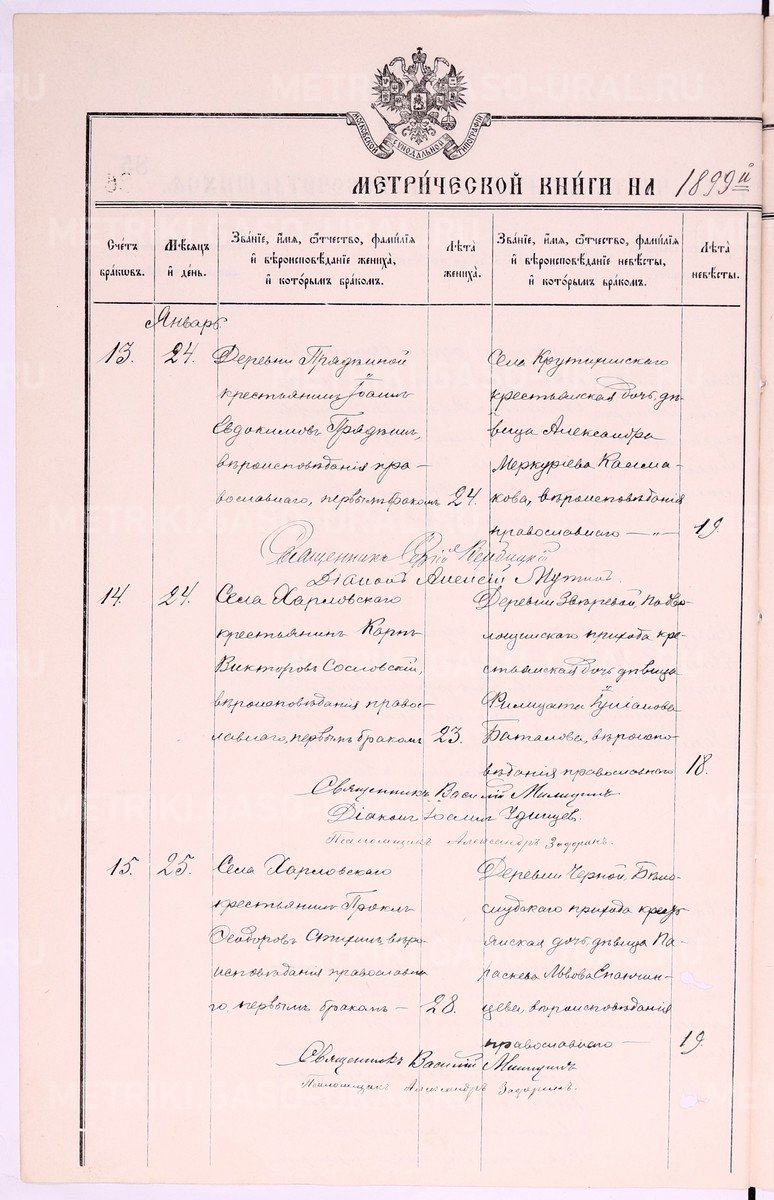 МОСКОВСКОЙ СУНОДАЛЬНОЙ ТИПОГРАФІИ
МЕТРИ́ЧЕСКОЙ КНИ́ГИ НА 1899й
Сче́тъ бра́кωвъ.
Мѣ́сѧцъ и҆ де́нь.
Зва́нїе, и҆́мѧ, ѻ҆́тчество, фами́лїѧ и҆ вѣроисповѣ́данїе жениха̀, и҆ кото́рымъ бра́комъ.
Лѣ́та жениха̀.
Зва́нїе, и҆́мѧ, ѻ҆́тчество, фами́лїѧ и҆ вѣроисповѣ́данїе невѣ́сты, и҆ кото́рымъ бра́комъ.
Лѣ́та невѣ́сты.
Январь
13. 24.
Деревни Пряжиной
крестьянинъ Іоаннъ
Евдокимовъ Пряжинъ,
вѣроисповѣданія пра-
вославнаго, первымъ бракомъ 24.
Села Крутихинскаго
крестьянская дочь дѣ-
вица Александра
Меркурьева Калма-
кова, вѣроисповѣданія
православнаго — „ — 19.
Священникъ Сергій
Діаконъ Алексій
14. 24.
Села Харловскаго
крестьянинъ Карпъ
Викторовъ Сословскій,
вѣроисповѣданія право-
славнаго, первымъ бракомъ 23.
Деревни Звѣревой,
прихода кре-
стьянская дочь дѣвица
Филицата Іуліанова
Баталова, вѣроиспо-
вѣданія православнаго 18.
Священникъ Василій
Діаконъ Іоаннъ Удинцев.
Псаломщикъ Александръ Задоринъ.
15. 25.
Села Харловскаго
крестьянинъ Проклъ
Ѳеодоровъ вѣро-
исповѣданія православна-
го, первымъ бракомъ — 28.
Деревни Черной, Бѣло-
слудскаго прихода кресть-
янская дочь дѣвица Па-
раскева Львова Епанчин-
цева, вѣроисповѣданія
православнаго — 19.
Священникъ Василій
Псаломщикъ Александръ Задоринъ.